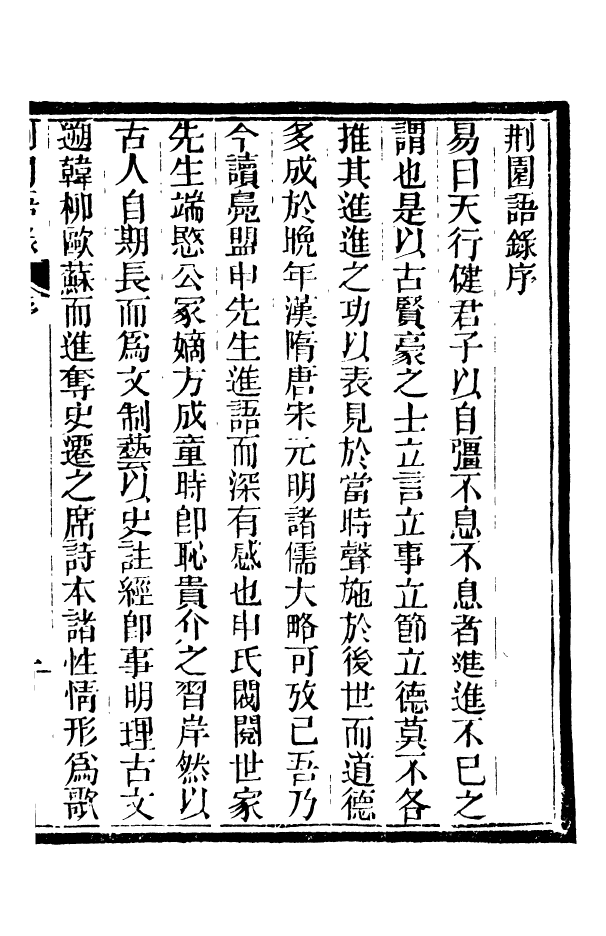 荆園語錄序
易曰天行健君子以自彊不息不息者進進不已之
謂也是以古賢豪之士立言立事立節立德莫不各
推其進進之功以表見於當時聲施於後世而道德
多成於晚年漢隋唐宋元明諸儒大略可攷已吾乃
今讀鳧盟申先生進語而深有感也申氏閥閱世家
先生端愍公冢嫡方成童時卽恥貴介之習岸然以
古人自期長而爲文制藝以史註經卽事明理古文
遡韓柳歐蘇而進奪史遷之席詩本諸性情形爲歌